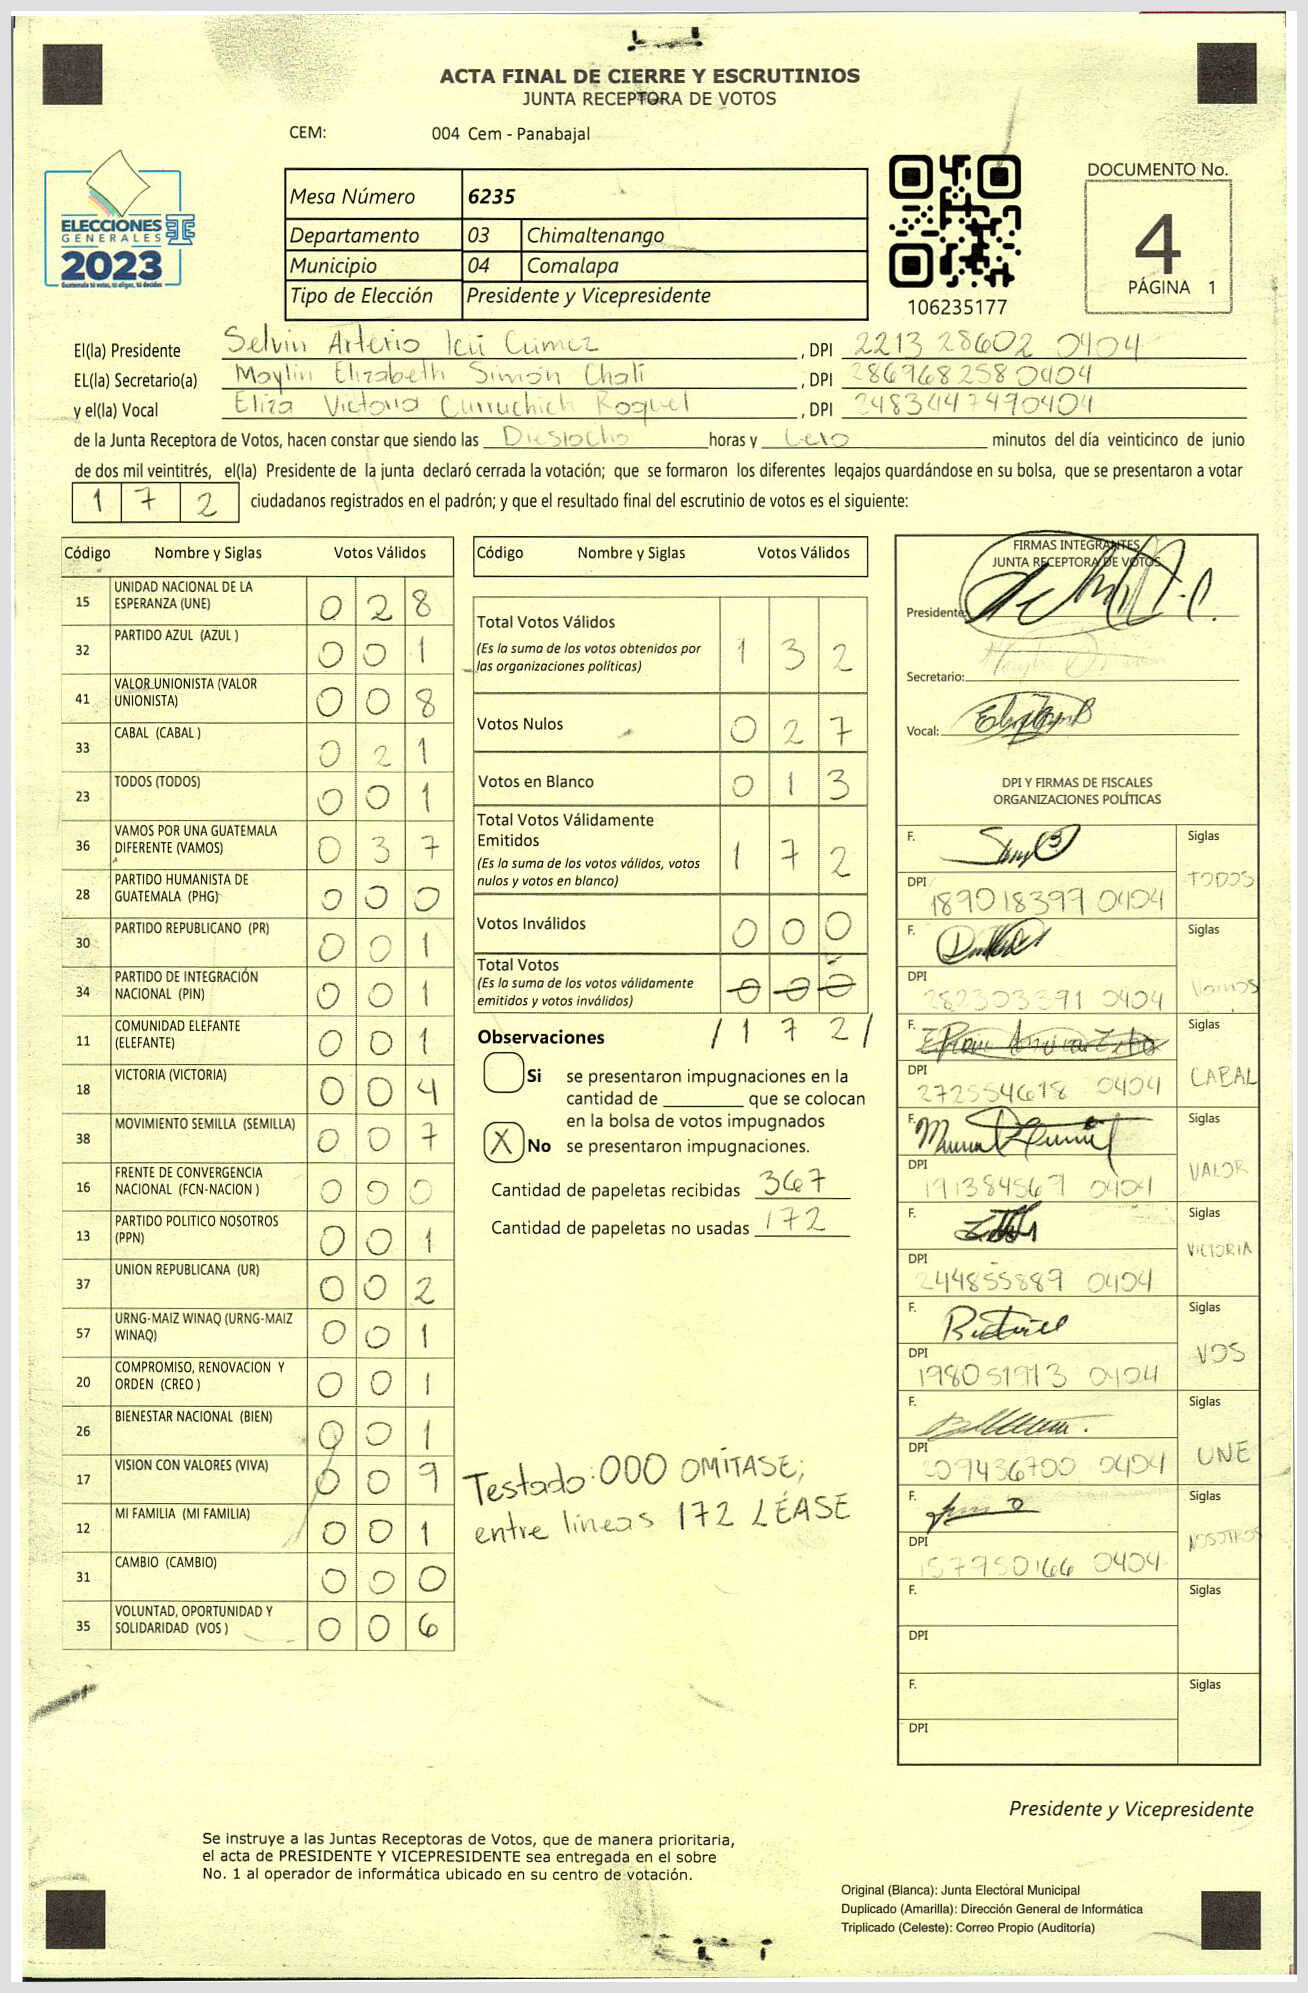 ACTA FINAL DE CIERRE Y ESCRUTINIOS
JUNTA RECEPTORA DE VOTOS
CEM: 004 Cem - Panabajal
ELECCIONES
GENERALES
2023
Guatemala tú votas, tú eliges, tú decides
Mesa Número 6235
Departamento 03 Chimaltenango
Municipio 04 Comalapa
Tipo de Elección Presidente y Vicepresidente
106235177
DOCUMENTO No.
4
PÁGINA 1
El(la) Presidente Selvin Arterio Icú Cúmez , DPI 2213 28602 0404
EL(la) Secretario(a) Maylin Elizabeth Simón Chalí , DPI 286968258 0404
y el(la) Vocal Eliza Victoria Curruchich Roquel , DPI 2483447490404
de la Junta Receptora de Votos, hacen constar que siendo las Dieciocho horas y Cero minutos del día veinticinco de junio
de dos mil veintitrés, el(la) Presidente de la junta declaró cerrada la votación; que se formaron los diferentes legajos quardándose en su bolsa, que se presentaron a votar
1 7 2 ciudadanos registrados en el padrón; y que el resultado final del escrutinio de votos es el siguiente:
Código Nombre y Siglas Votos Válidos
15 UNIDAD NACIONAL DE LA ESPERANZA (UNE) 0 2 8
32 PARTIDO AZUL (AZUL ) 0 0 1
41 VALOR UNIONISTA (VALOR UNIONISTA) 0 0 8
33 CABAL (CABAL ) 0 2 1
23 TODOS (TODOS) 0 0 1
36 VAMOS POR UNA GUATEMALA DIFERENTE (VAMOS) 0 3 7
28 PARTIDO HUMANISTA DE GUATEMALA (PHG) 0 0 0
30 PARTIDO REPUBLICANO (PR) 0 0 1
34 PARTIDO DE INTEGRACIÓN NACIONAL (PIN) 0 0 1
11 COMUNIDAD ELEFANTE (ELEFANTE) 0 0 1
18 VICTORIA (VICTORIA) 0 0 4
38 MOVIMIENTO SEMILLA (SEMILLA) 0 0 7
16 FRENTE DE CONVERGENCIA NACIONAL (FCN-NACION ) 0 0 0
13 PARTIDO POLITICO NOSOTROS (PPN) 0 0 1
37 UNION REPUBLICANA (UR) 0 0 2
57 URNG-MAIZ WINAQ (URNG-MAIZ WINAQ) 0 0 1
20 COMPROMISO, RENOVACION Y ORDEN (CREO ) 0 0 1
26 BIENESTAR NACIONAL (BIEN) 0 0 1
17 VISION CON VALORES (VIVA) 0 0 9
12 MI FAMILIA (MI FAMILIA) 0 0 1
31 CAMBIO (CAMBIO) 0 0 0
35 VOLUNTAD, OPORTUNIDAD Y SOLIDARIDAD (VOS ) 0 0 6
Código Nombre y Siglas Votos Válidos
Total Votos Válidos 1 3 2
(Es la suma de los votos obtenidos por
las organizaciones políticas)
Votos Nulos 0 2 7
Votos en Blanco 0 1 3
Total Votos Válidamente
Emitidos 1 7 2
(Es la suma de los votos válidos, votos
nulos y votos en blanco)
Votos Inválidos 0 0 0
Total Votos
(Es la suma de los votos válidamente
emitidos y votos inválidos) 0 0 0
/ 1 7 2 /
Observaciones
Si se presentaron impugnaciones en la
cantidad de ________ que se colocan
en la bolsa de votos impugnados
X No se presentaron impugnaciones.
Cantidad de papeletas recibidas 367
Cantidad de papeletas no usadas 172
Testado: 000 OMÍTASE;
entre líneas 172 LÉASE
FIRMAS INTEGRANTES
JUNTA RECEPTORA DE VOTOS
Presidente:
Secretario:
Vocal:
DPI Y FIRMAS DE FISCALES
ORGANIZACIONES POLÍTICAS
F. Siglas
DPI 189018397 0404 TODOS
F. Siglas
DPI 282303391 0404 Vamos
F. Siglas
DPI 272554618 0404 CABAL
F. Siglas
DPI 191384567 0404 VALOR
F. Siglas
DPI 244855889 0404 VICTORIA
F. Siglas
DPI 198051913 0404 VOS
F. Siglas
DPI 209436700 0404 UNE
F. Siglas
DPI 157950166 0404 NOSOTROS
F. Siglas
DPI
F. Siglas
DPI
Presidente y Vicepresidente
Se instruye a las Juntas Receptoras de Votos, que de manera prioritaria,
el acta de PRESIDENTE Y VICEPRESIDENTE sea entregada en el sobre
No. 1 al operador de informática ubicado en su centro de votación.
Original (Blanca): Junta Electoral Municipal
Duplicado (Amarilla): Dirección General de Informática
Triplicado (Celeste): Correo Propio (Auditoría)